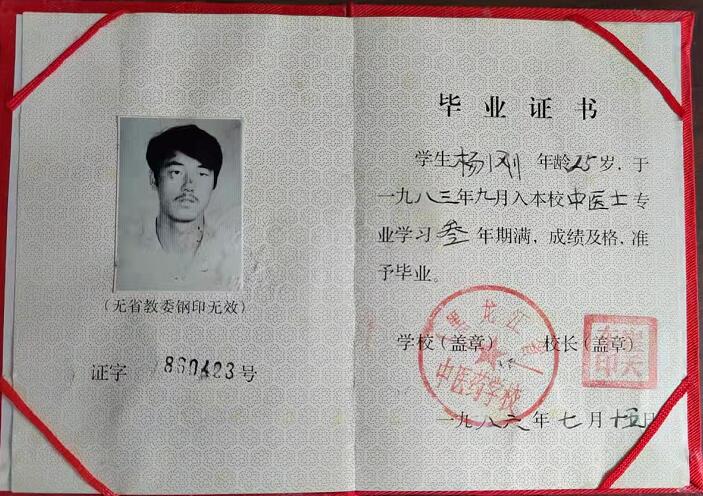 (无省教委钢印无效)
证字 860423号
毕业证书
学生杨刚 年龄25岁, 于
一九八三年九月入本校中医士专
业学习叁年期满, 成绩及格, 准
予毕业。
学校(盖章) 校长(盖章)
黑龙江省
中医药学校
一九八六年七月十五日